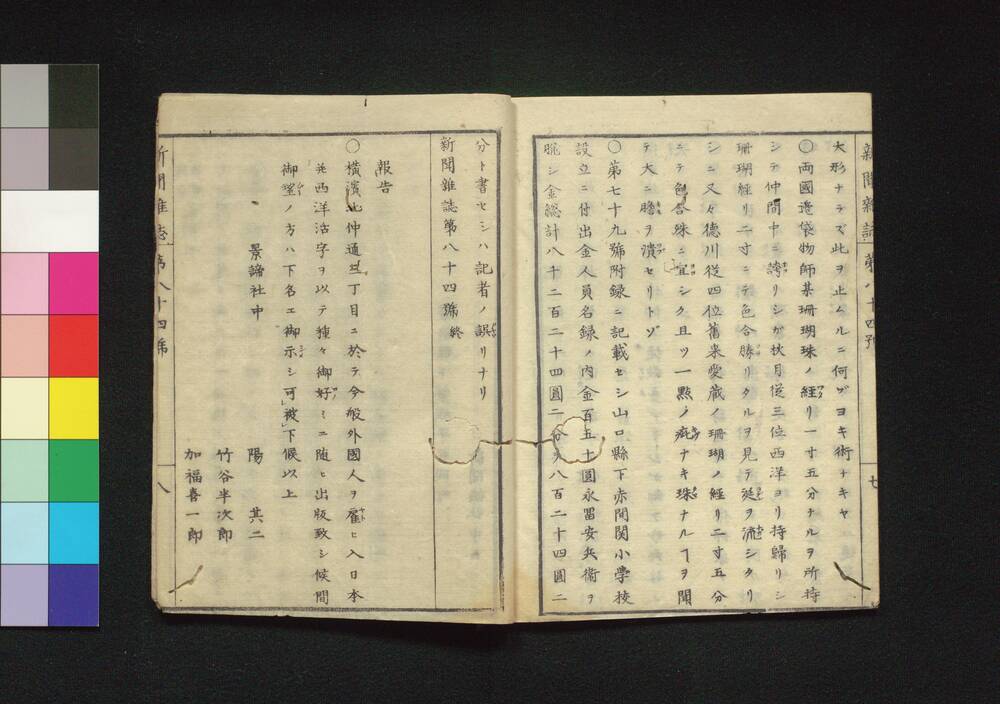 新聞雜誌 第八十四號 七
大形ナラズ此ヲ止ムルニ何ゾヨキ術ナキヤ
〇両國邉袋物師某珊瑚珠ノ經リ一寸五分ナルヲ所持
シテ仲間中ニ誇リシガ秋月従三位西洋ヨリ持歸リシ
珊瑚經リ二寸ニテ色合勝リタルヲ見テ涎ヲ流シタリ
シニ又々德川従四位舊来愛蔵ノ珊瑚ノ經リ二寸五分
ニテ色合殊ニ宜シク且ツ一㸃ノ疵ナキ珠ナルヿヲ聞
テ大ニ膽ヲ潰セリトゾ
〇第七十九號附録ニ記載セシ山口縣下赤間関小學校
設立ニ付出金人員名録ノ内金百五十圓永冨安兵衛ヲ
脱シ金総計八千二百二十四圓二分ヲ八百二十四圓二
分ト書セシハ記者ノ誤リナリ
新聞雜誌第八十四號 終
報告
〇横濱北仲通 丁目ニ於テ今般外國人ヲ雇ヒ入日本
并西洋活字ヲ以テ種々御好ミニ随ヒ出版致シ候間
御望ノ方ハ下名エ御示シ可被下候以上
景諦社中
陽 其二
竹谷半次郎
加福喜一郎
新聞雜誌 第八十四號 八